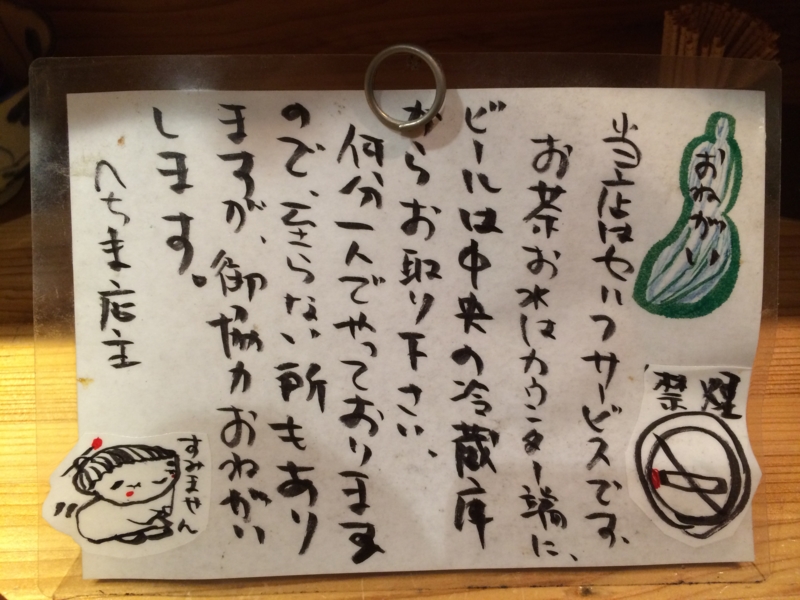 おねがい
当店はセルフサービスです。
お茶お水はカウンター端に、
ビールは中央の冷蔵庫
からお取り下さい、
何分一人でやっております
ので、至らない所もあり
ますが、御協力おねがい
します。
へちま店主
禁煙
すみません